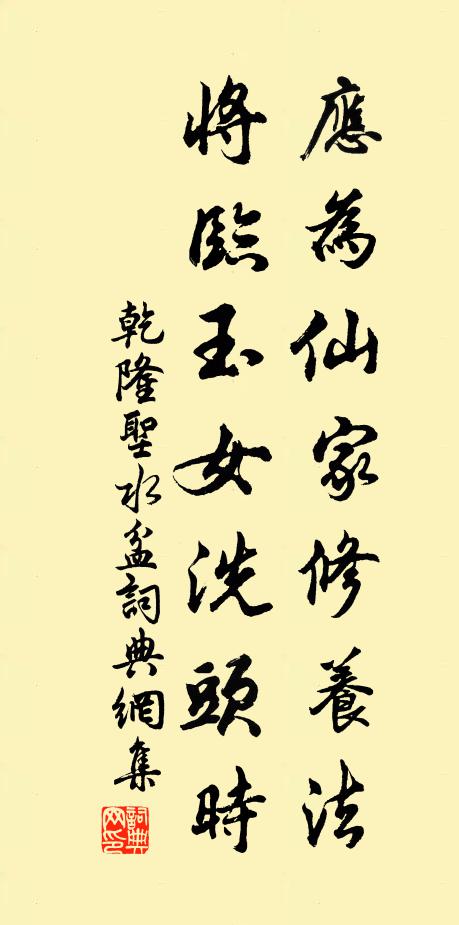 應為仙家修養法
將臨玉女洗頭時
乾隆聖水盆詞典網集
詞典網印